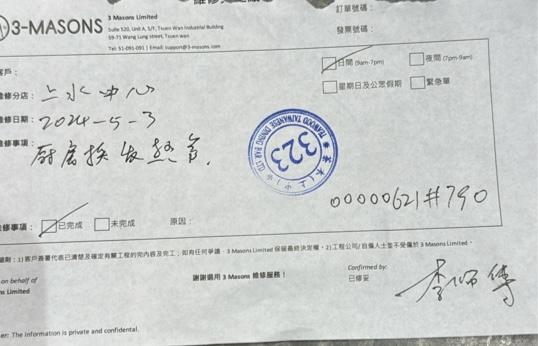 3-MASONS
3 Masons Limited
Suite 520, Unit A, 5/F, Tsuen Wan Industrial Building
59-71 Wang Lung street, Tsuen wan
Tel: 51-091-091 | Email: support@3-masons.com
訂單號碼：
發票號碼：
客戶：
日間 (9am-7pm)
夜間 (7pm-9am)
星期日及公眾假期
緊急單
維修分店： 上水中心
維修日期： 2024-5-3
維修事項： 廚房換發熱
TEAWOOD TAIWANESE DINING BAR
323
00000621#790
維修事項：
已完成
未完成
原因：
1) 客戶簽署代表已清楚及確定有關工程的完內容及完工；如有任何爭議，3 Masons Limited 保留最終決定權。2) 工程公司/自僱人士並不受僱於 3 Masons Limited。
on behalf of
Limited
謝謝選用 3 Masons 維修服務！
Confirmed by:
已修妥
李師傅
The information is private and confidential.